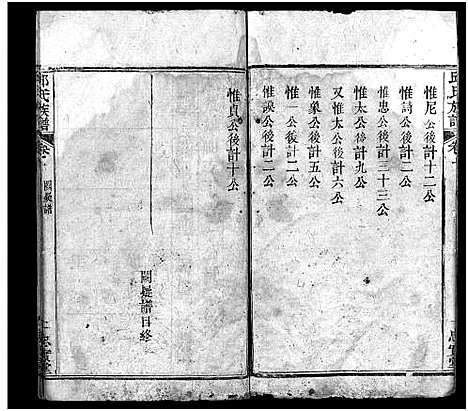 邱氏族譜
惟尼公後計十二公
惟詩公後計二公
惟忠公後計三十三公
惟太公後計九公
又惟太公後計六公
惟象公後計五公
惟一公後計二公
惟誤公後計二公
惟貞公後計十公
譜目終
邱氏族譜